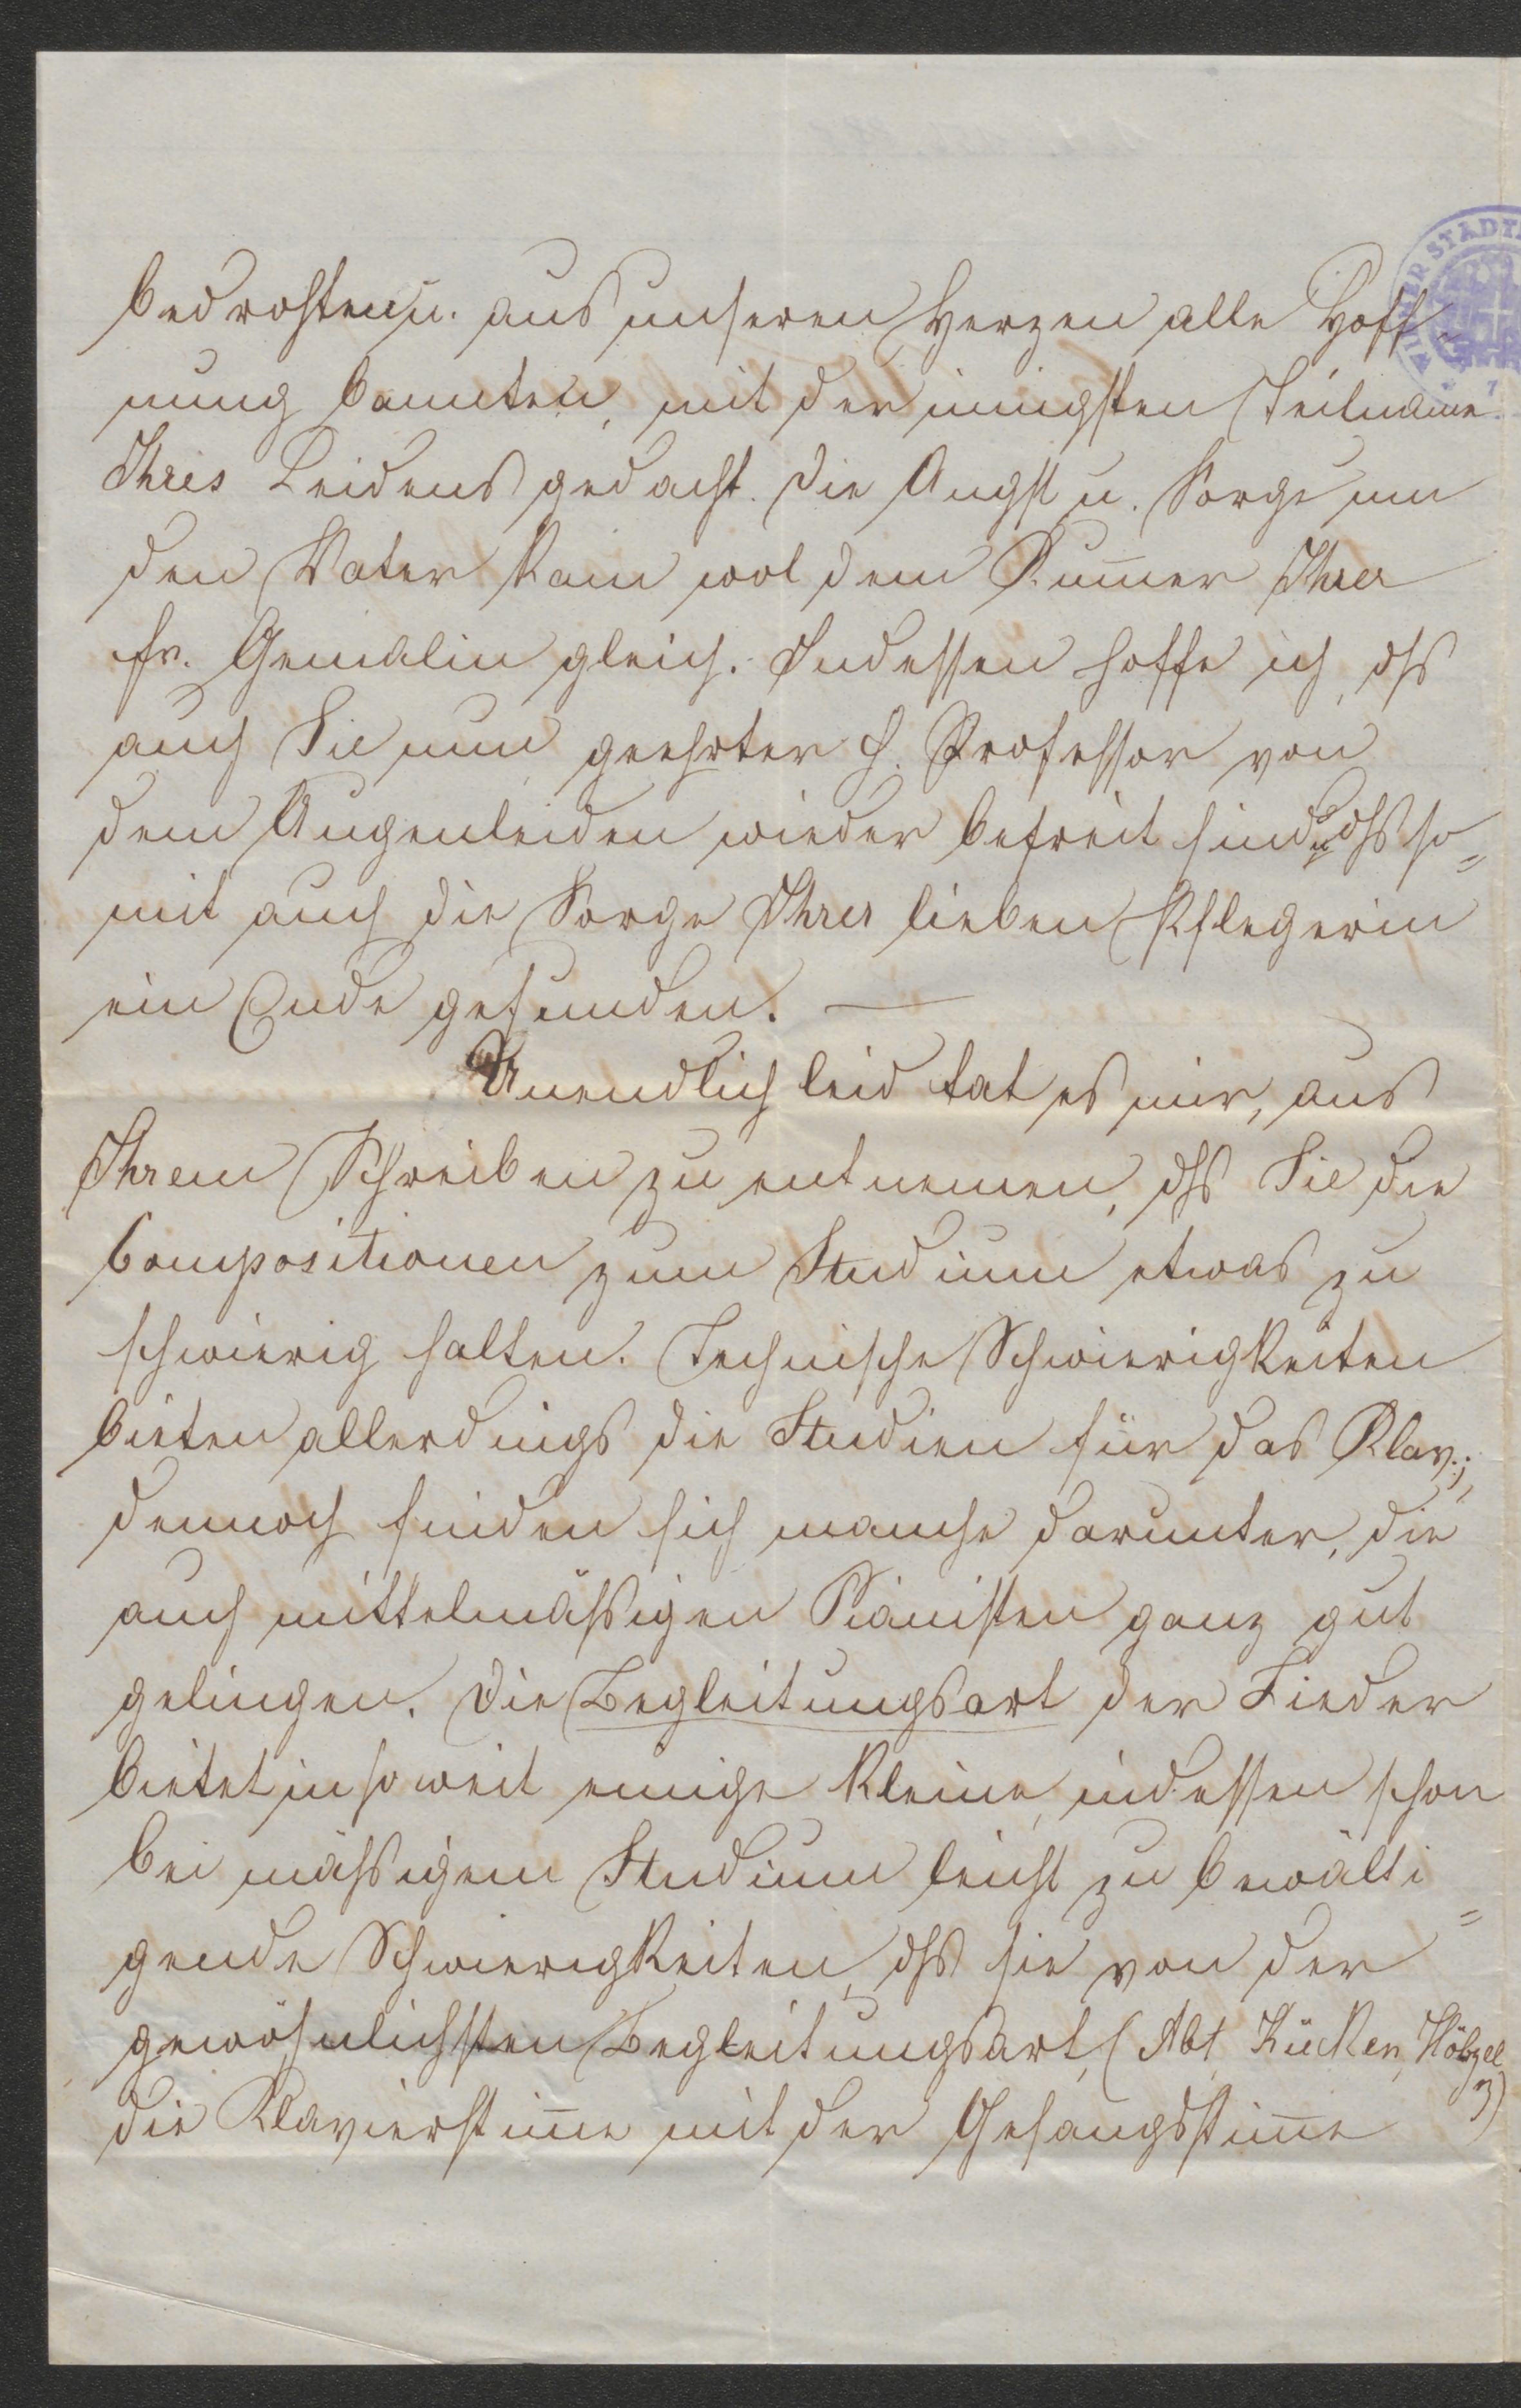 bedrohten u. aus unseren Herzen alle Hoff-
nung bannten, mit der innigsten Teilname
Ihres Leidens gedacht. Die Angst u. Sorge um
den Vater kam wol dem Kum̅er Ihrer
Fr. Gemalin gleich. Indessen hoffe ich, dß
auch Sie nun geehrter H. Professor von
dem Augenleiden wieder befreit sind u dß so=
mit auch die Sorge Ihrer lieben Pflegerin
ein Ende gefunden. —
Unendlich leid tat es mir, aus
Ihrem Schreiben zu entnemen, dß Sie die
Compositionen zum Studium etwas zu
schwierig halten. Technische Schwierigkeiten
bieten allerdings die Studien für das Klav.;
dennoch finden sich manche darunter, die
auch mittelmäßigen Pianisten ganz gut
gelingen. Die Begleitungsart der Lieder
bietet insoweit einige kleine, indessen schon
bei mäßigem Studium leicht zu bewälti=
gende Schwierigkeiten, dß sie von der
gewöhnlichsten Begleitungsart, (Abt, Kücken, Hölzel
die Klavierstim̅e mit der Gesangsstim̅e
WIENER STADT